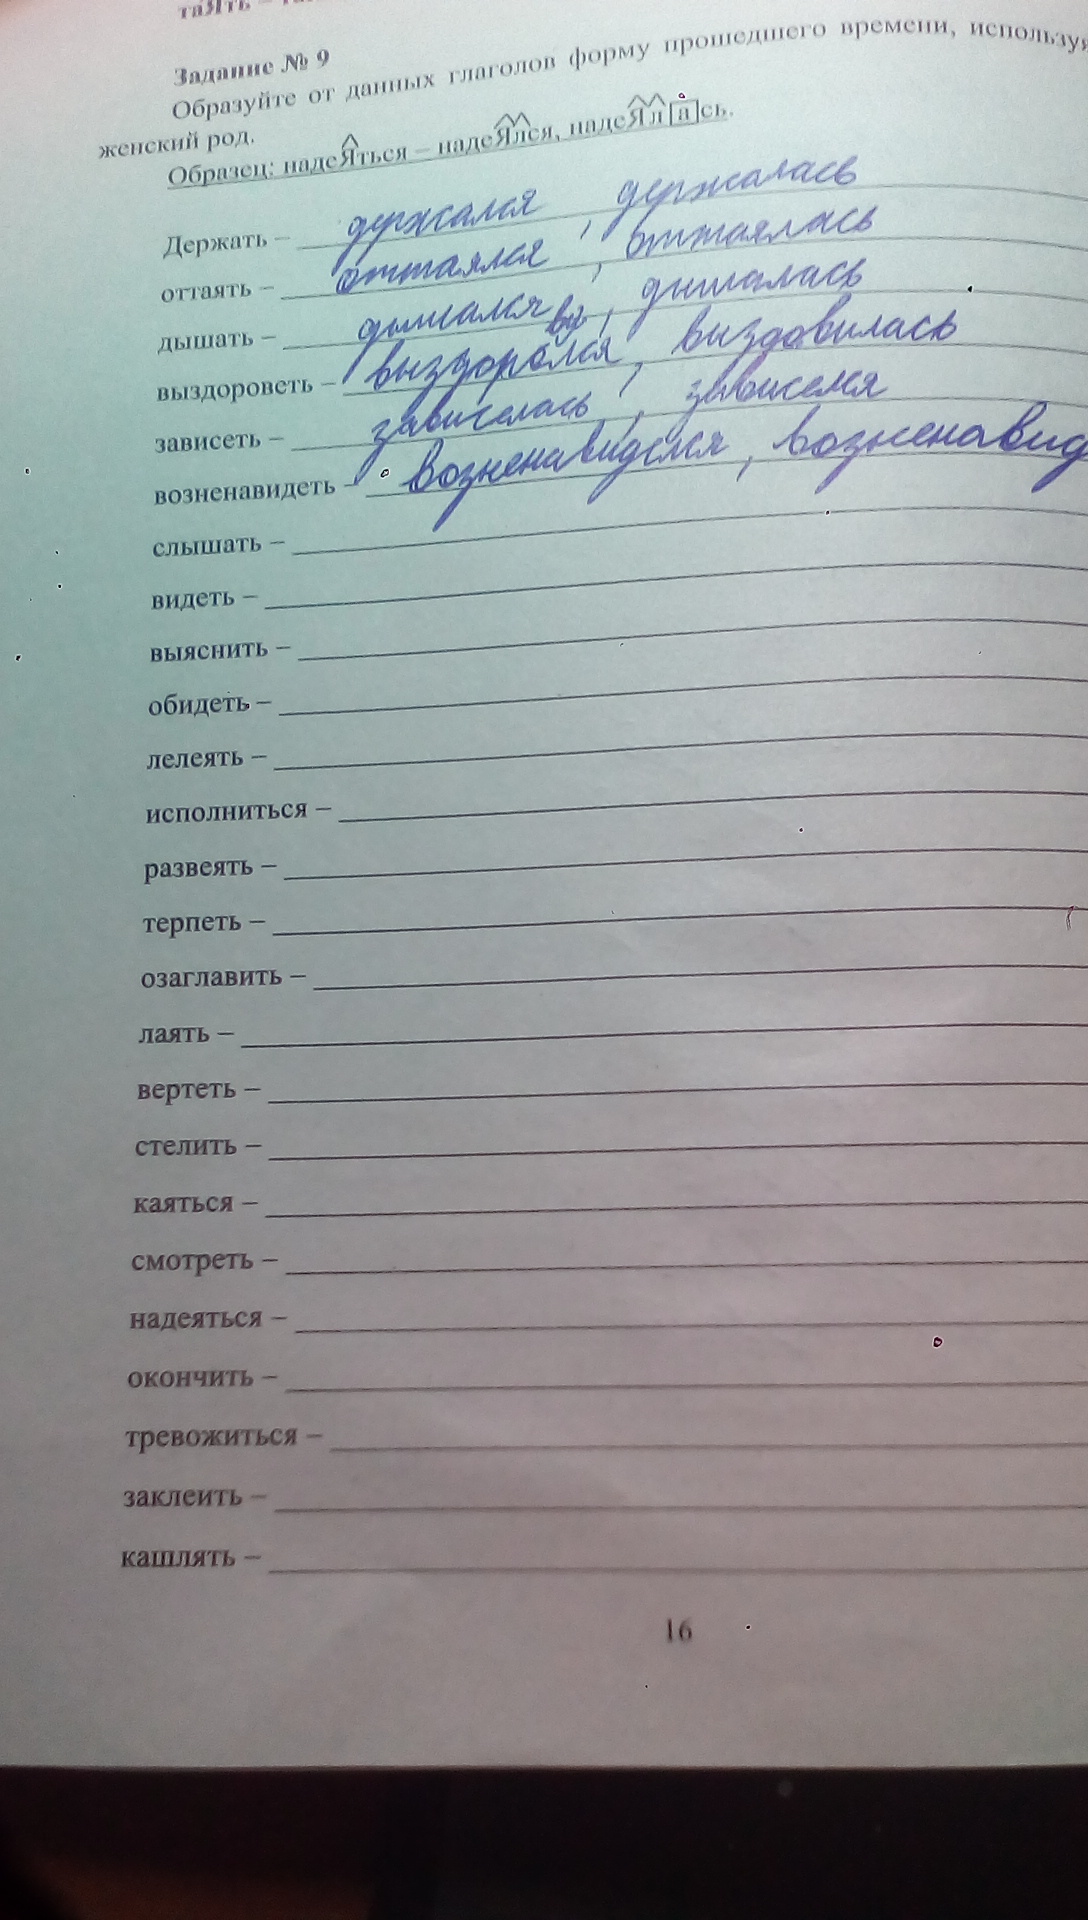 таЯть –
Задание № 9
Образуйте от данных глаголов форму прошедшего времени, используя
женский род.
Образец: надеЯться – надеЯлся, надеЯлась.
Держать – держался, держалась
оттаять – оттаялся, оттаялась
дышать – дышался, дышалась
выздороветь – выздоровался, выздовилась
зависеть – зависелась, зависелся
возненавидеть – возненавиделся, возненавид
слышать –
видеть –
выяснить –
обидеть –
лелеять –
исполниться –
развеять –
терпеть –
озаглавить –
лаять –
вертеть –
стелить –
каяться –
смотреть –
надеяться –
окончить –
тревожиться –
заклеить –
кашлять –
16